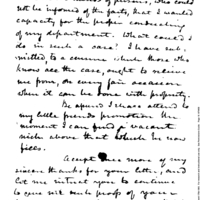 could
not be informed of the facts, that I wanted
capacity for the proper conducting
of my department. What could I
do in such a case? I have sub-
mitted to a censure which those who
know all the case, ought to relieve
me from, on any fair occasion
when it can be done with propriety.
Be assured I shall attend to
my little friends promotion the
moment I can find a vacant
nich above that which he now
fills.
Accept once more of my
sincere thanks for your letter, and
let me intreat you to continue
to give me such proofs of your